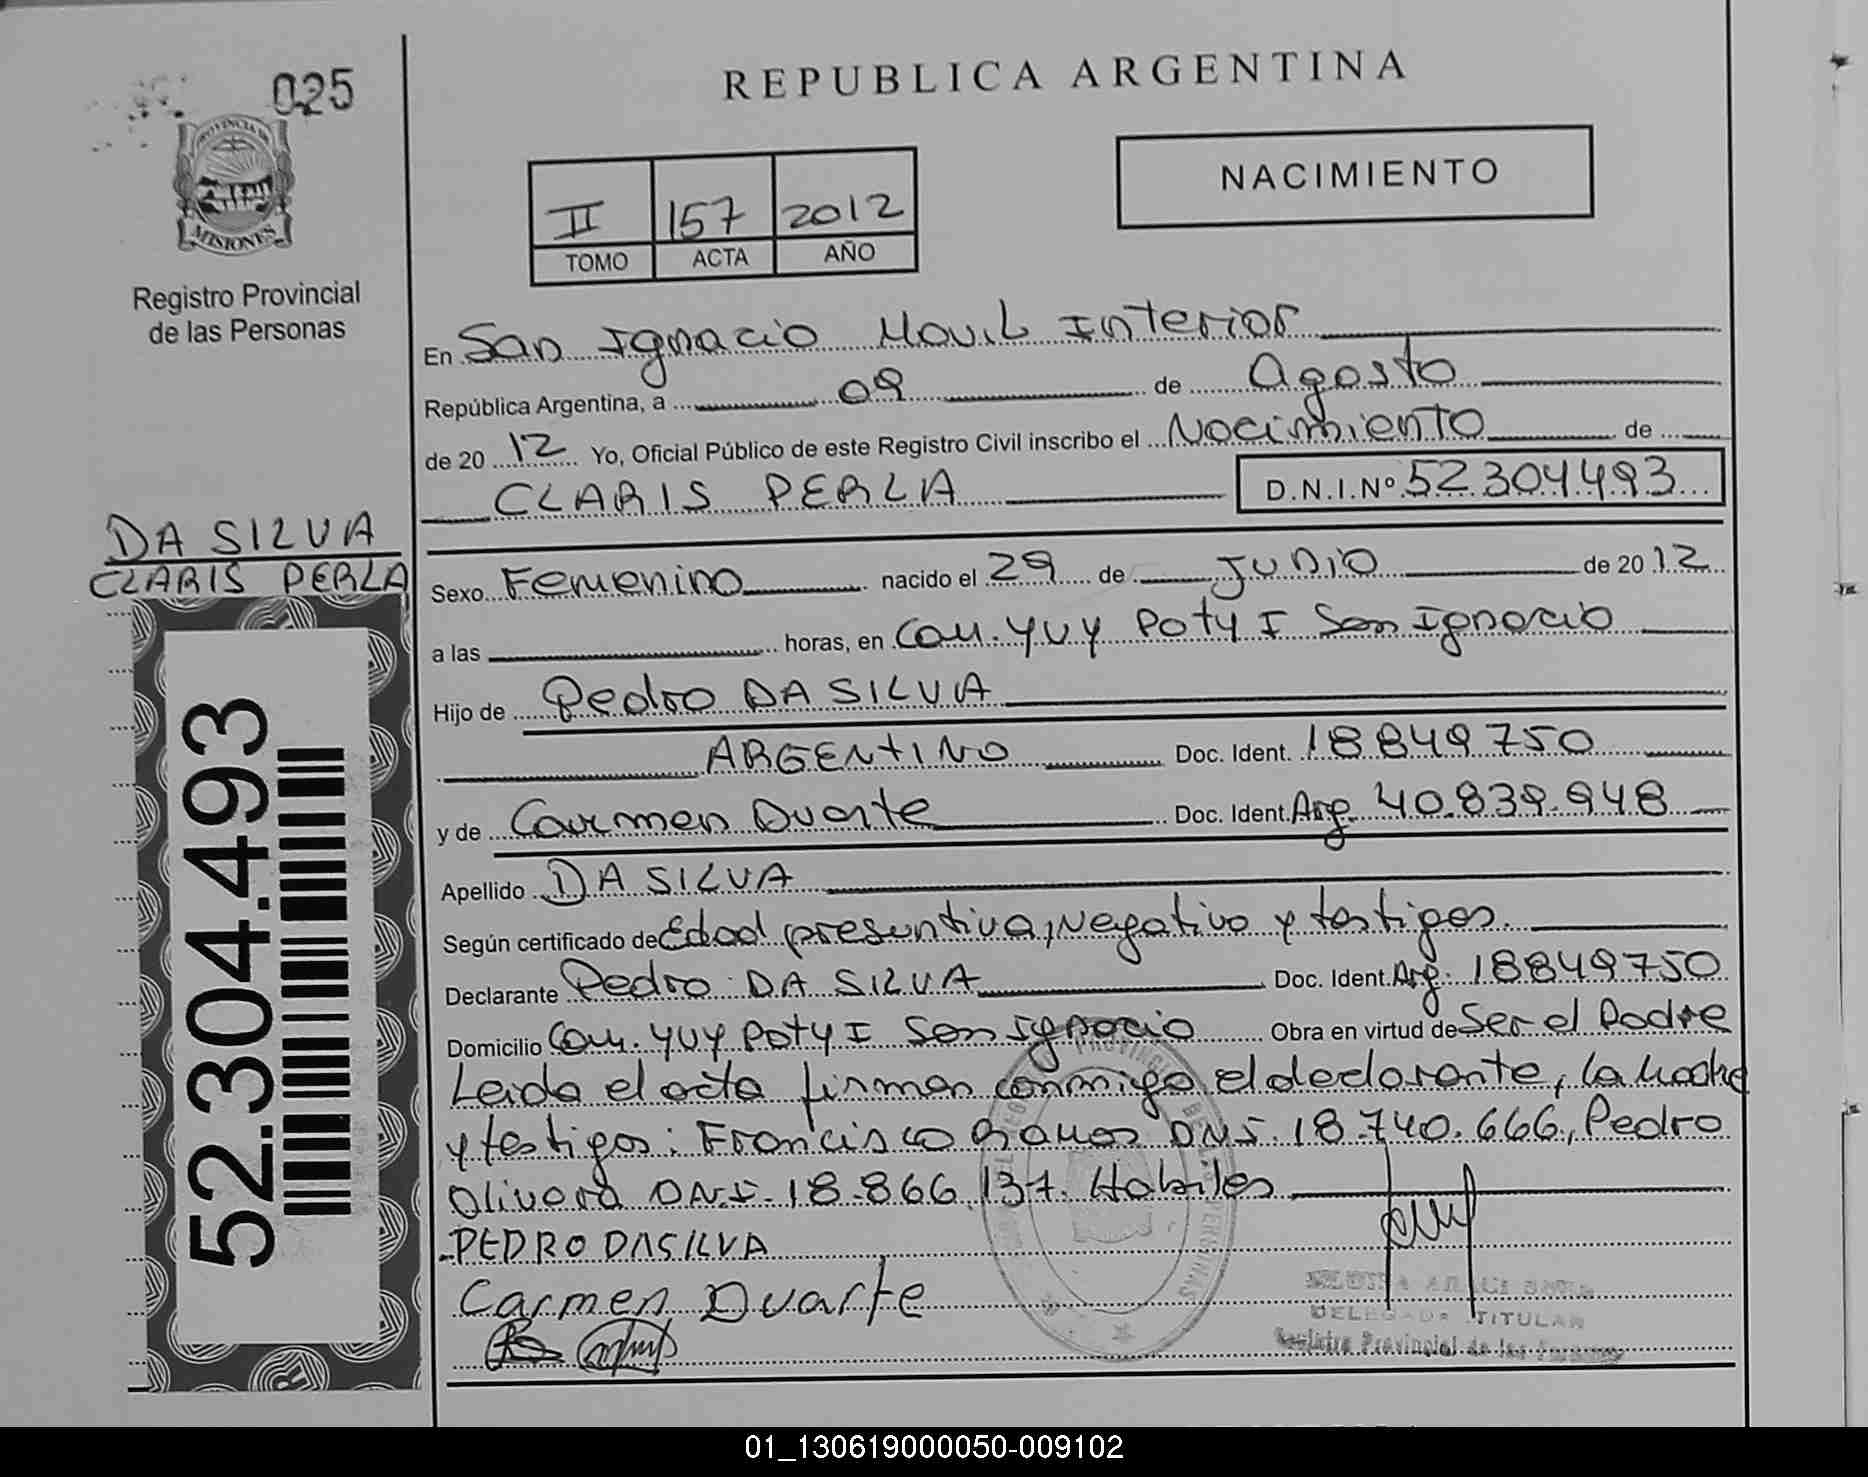 025
PROVINCIA DE
MISIONES
Registro Provincial
de las Personas
DA SILVA
CLARIS PERLA
52.304.493
REPUBLICA ARGENTINA
NACIMIENTO
II 157 2012
TOMO ACTA AÑO
En San Ignacio Movil Interior
República Argentina, a 09 de Agosto
de 20 12 Yo, Oficial Público de este Registro Civil inscribo el Nacimiento de
CLARIS PERLA D.N.I.Nº 52304493
Sexo Femenino nacido el 29 de Junio de 20 12
a las horas, en Com. YUY Poty I San Ignacio
Hijo de Pedro DA SILVA
ARGENTINO Doc. Ident. 18849750
y de Carmen Duarte Doc. Ident. Arg. 40.839.948
Apellido DA SILVA
Según certificado de Edad presuntiva, Negativo y testigos.
Declarante Pedro DA SILVA Doc. Ident. Arg. 18849750
Domicilio Com. YUY Poty I San Ignacio Obra en virtud de Ser el Padre
Leida el acta firman conmigo el declarante, la Madre
y testigos: Francisco DNI. 18.740.666, Pedro
Olivera DNI. 18.866.137. Habiles
PEDRO DASILVA
Carmen Duarte
DELEGADA TITULAR
Registro Provincial de las Personas
01_130619000050-009102